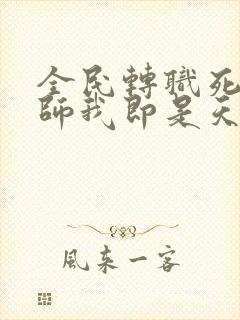 全民轉職死
師我即是天
風來一客